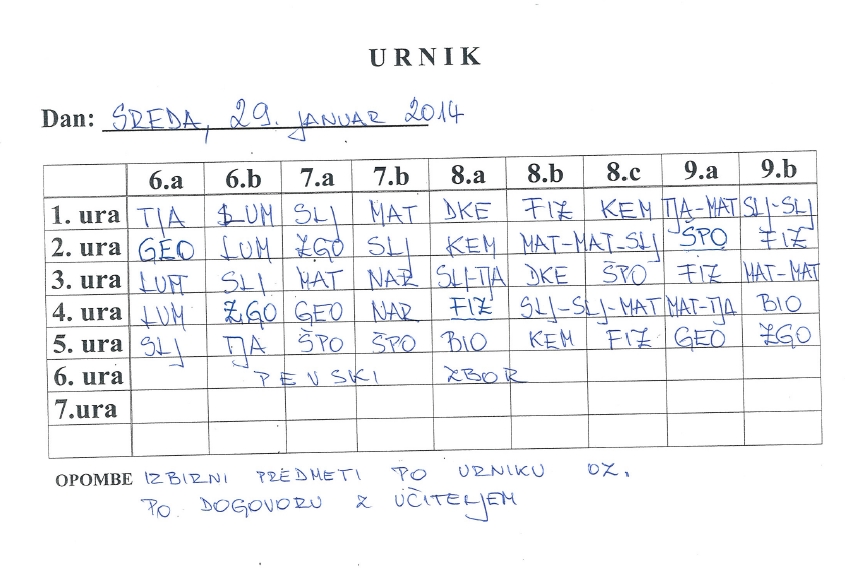 URNIK
Dan: SREDA, 29. JANUAR 2014
6.a 6.b 7.a 7.b 8.a 8.b 8.c 9.a 9.b
1. ura TJA LUM SLJ MAT DKE FIZ KEM TJA-MAT SLJ-SLJ
2. ura GEO LUM ZGO SLJ KEM MAT-MAT-SLJ ŠPO FIZ
3. ura LUM SLJ MAT NAR SLJ-TJA DKE ŠPO FIZ MAT-MAT
4. ura LUM ZGO GEO NAR FIZ SLJ-SLJ-MAT MAT-TJA BIO
5. ura SLJ TJA ŠPO ŠPO BIO KEM FIZ GEO ZGO
6. ura PEVSKI ZBOR
7.ura
OPOMBE IZBIRNI PREDMETI PO URNIKU OZ.
PO DOGOVORU Z UČITELJEM